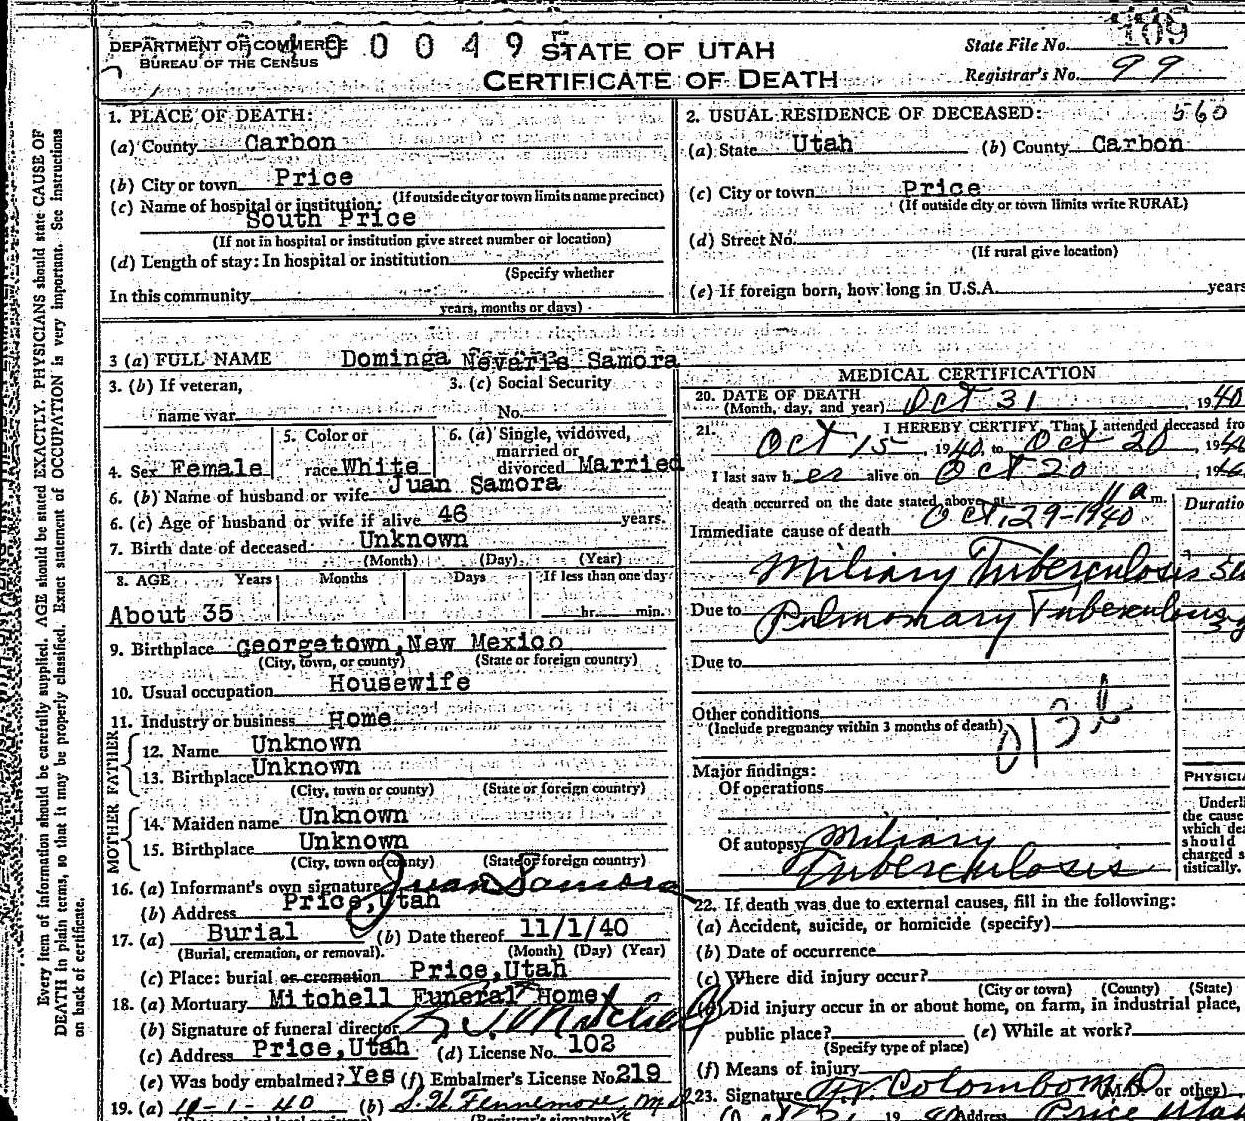 DEPARTMENT OF COMMERCE
BUREAU OF THE CENSUS
0 0 0 4 9
STATE OF UTAH
CERTIFICATE OF DEATH
State File No. 109
Registrar's No. 99
1. PLACE OF DEATH:
(a) County Carbon
(b) City or town Price
(If outside city or town limits name precinct)
(c) Name of hospital or institution:
South Price
(If not in hospital or institution give street number or location)
(d) Length of stay: In hospital or institution
(Specify whether
In this community
years, months or days)
2. USUAL RESIDENCE OF DECEASED: 560
(a) State Utah (b) County Carbon
(c) City or town Price
(If outside city or town limits write RURAL)
(d) Street No.
(If rural give location)
(e) If foreign born, how long in U.S.A. years
3 (a) FULL NAME Dominga Nevaris Samora
3. (b) If veteran,
name war
3. (c) Social Security
No.
4. Sex Female
5. Color or
race White
6. (a) Single, widowed,
married or
divorced Married
6. (b) Name of husband or wife Juan Samora
6. (c) Age of husband or wife if alive 46 years.
7. Birth date of deceased Unknown
(Month) (Day) (Year)
8. AGE Years Months Days If less than one day
About 35 hr. min.
9. Birthplace Georgetown, New Mexico
(City, town, or county) (State or foreign country)
10. Usual occupation Housewife
11. Industry or business Home
FATHER
12. Name Unknown
13. Birthplace Unknown
(City, town or county) (State or foreign country)
MOTHER
14. Maiden name Unknown
15. Birthplace Unknown
(City, town or county) (State or foreign country)
16. (a) Informant's own signature Juan Samora
(b) Address Price, Utah
17. (a) Burial (b) Date thereof 11/1/40
(Burial, cremation, or removal). (Month) (Day) (Year)
(c) Place: burial or cremation Price, Utah
18. (a) Mortuary Mitchell Funeral Home
(b) Signature of funeral director
(c) Address Price, Utah (d) License No. 102
(e) Was body embalmed? Yes (f) Embalmer's License No 219
19. (a) 11-1-40 (b)
MEDICAL CERTIFICATION
20. DATE OF DEATH
(Month, day, and year) Oct 31, 1940
21. I HEREBY CERTIFY, That I attended deceased fro
Oct 15, 1940, to Oct 20, 19
I last saw her alive on Oct 20, 19
death occurred on the date stated above, at 11 a m.
Oct. 29-1940
Duratio
Immediate cause of death
Miliary Tuberculosis
Due to Pulmonary Tuberculosis
Due to
Other conditions
(Include pregnancy within 3 months of death)
Major findings:
Of operations
Of autopsy Miliary
Tuberculosis
PHYSICIA
Underli
the cause
which dea
should
charged s
tistically.
22. If death was due to external causes, fill in the following:
(a) Accident, suicide, or homicide (specify)
(b) Date of occurrence
(c) Where did injury occur?
(City or town) (County) (State)
Did injury occur in or about home, on farm, in industrial place,
public place? (e) While at work?
(Specify type of place)
(f) Means of injury
23. Signature Colombo M.D. (M.D. or other)
Address Price Utah
Every item of information should be carefully supplied. AGE should be stated EXACTLY. PHYSICIANS should state CAUSE OF
DEATH in plain terms, so that it may be properly classified. Exact statement of OCCUPATION is very important. See instructions
on back of certificate.